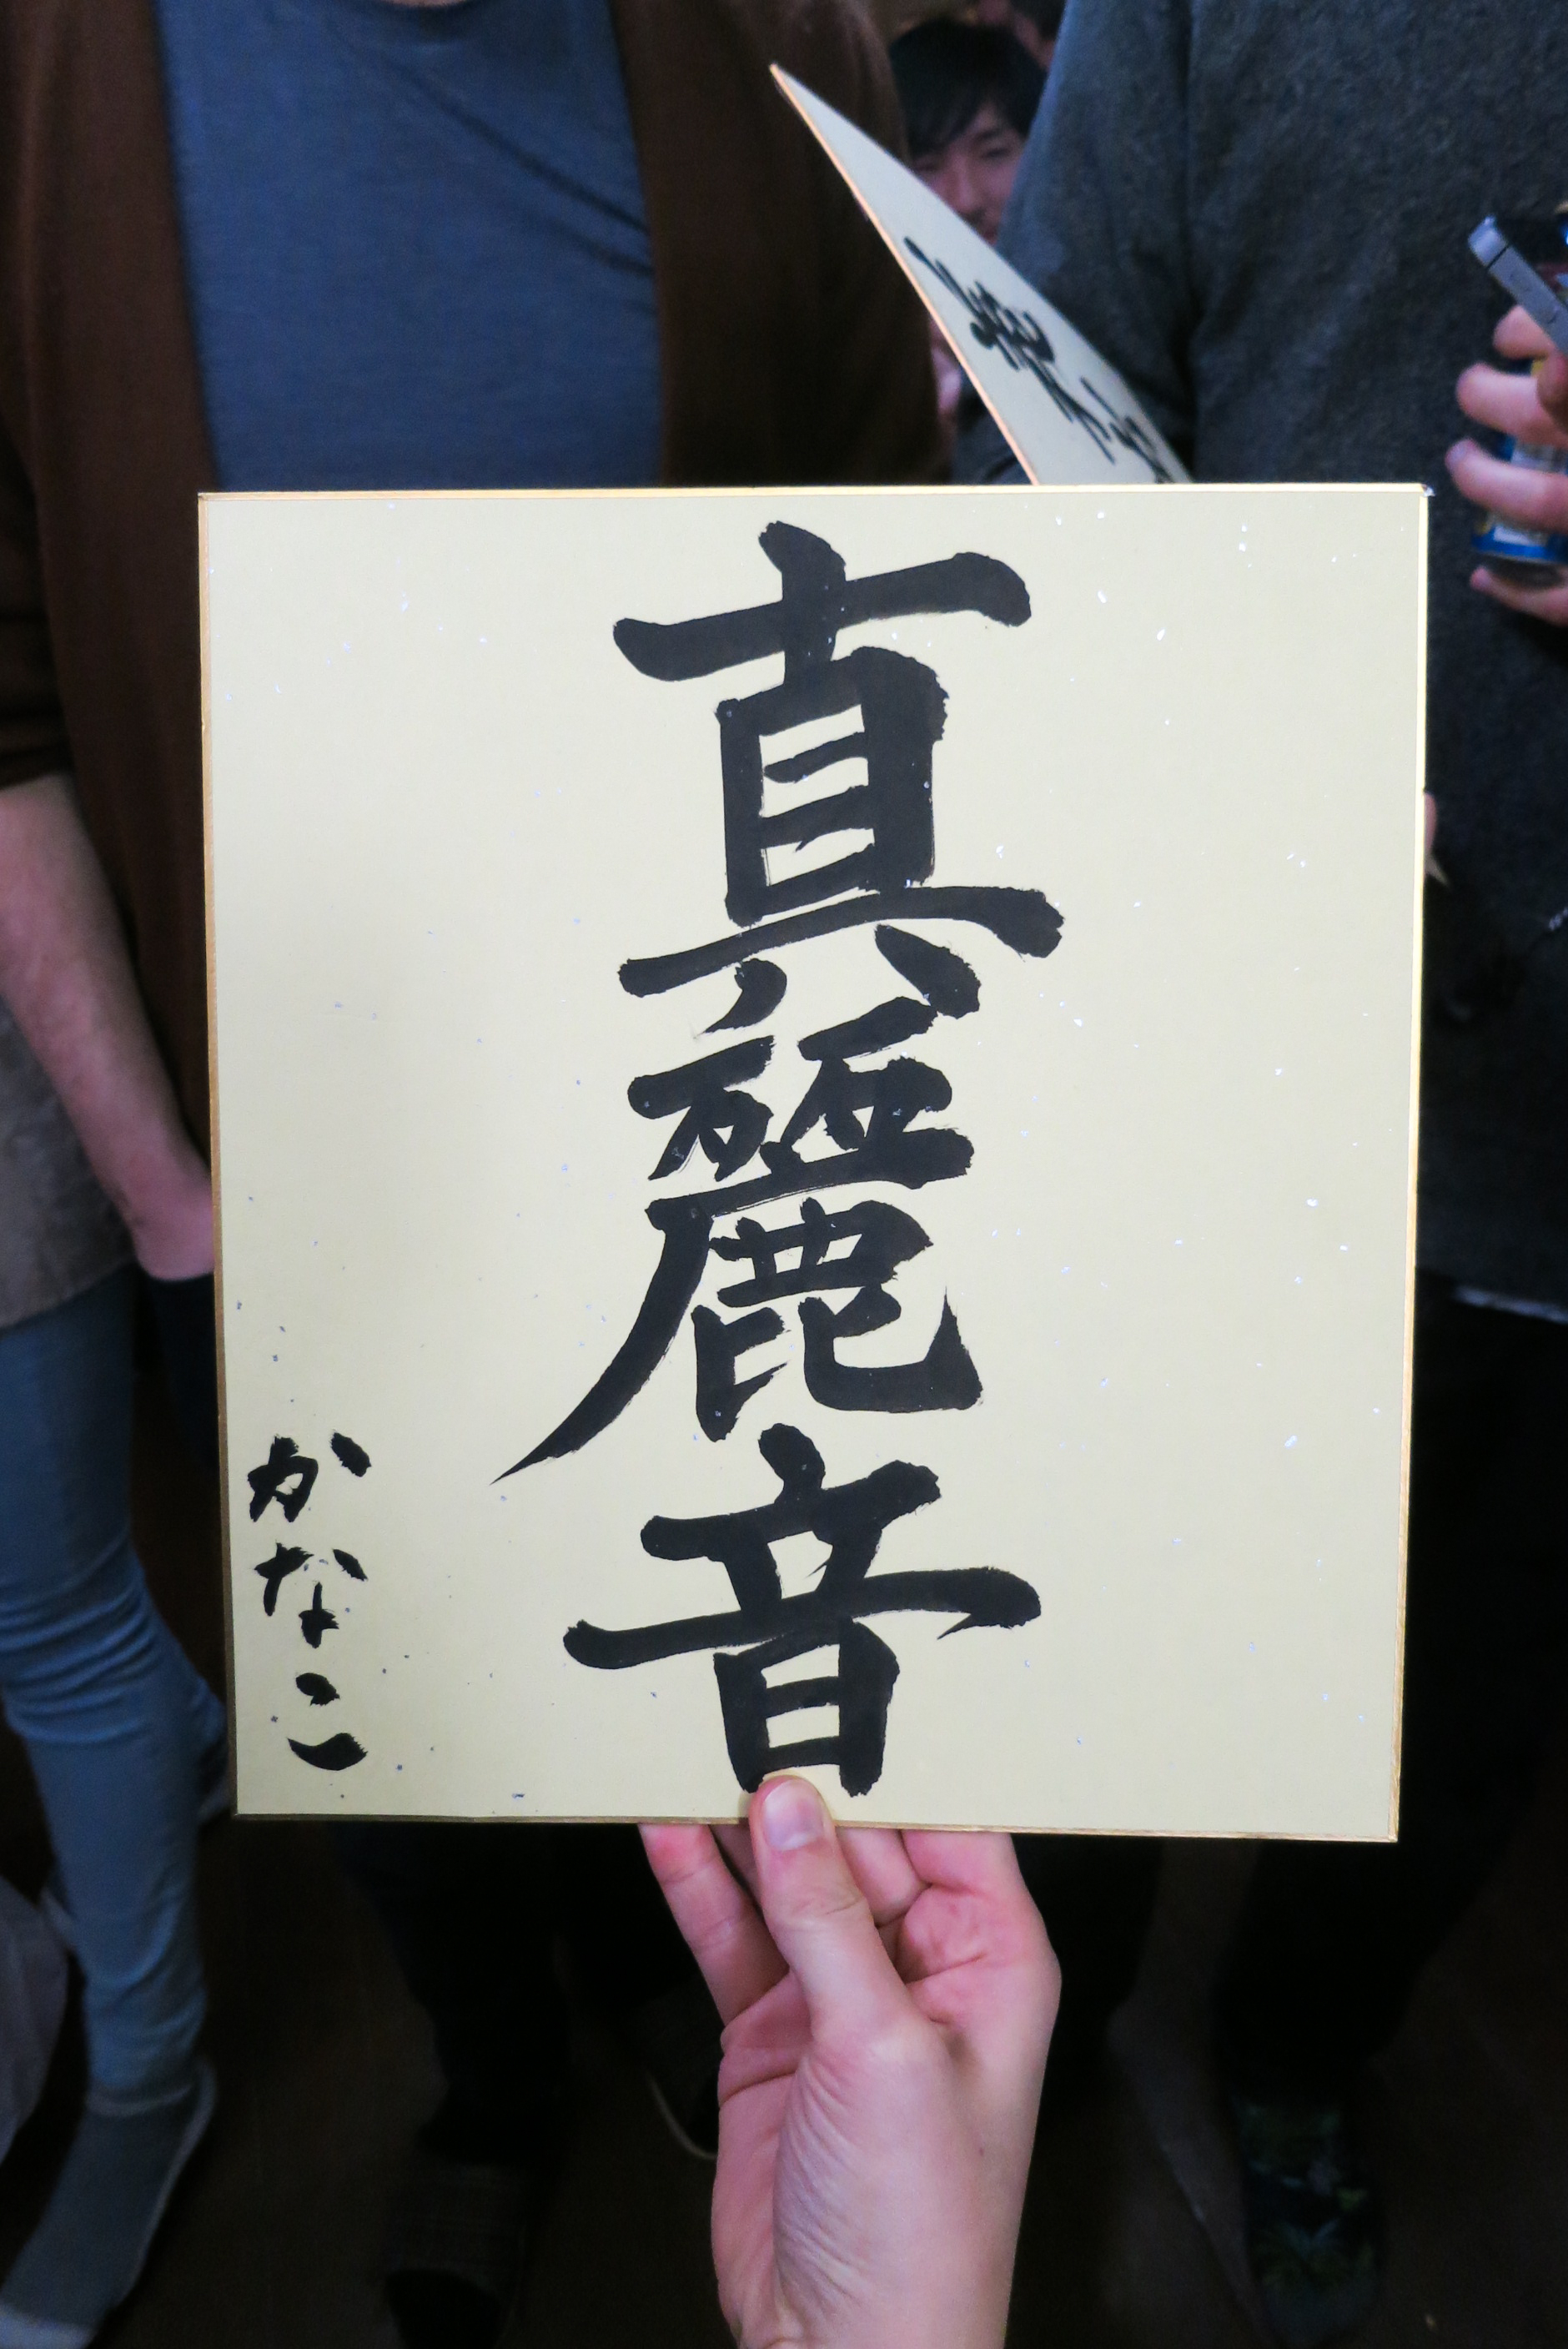 真麗音
かなこ